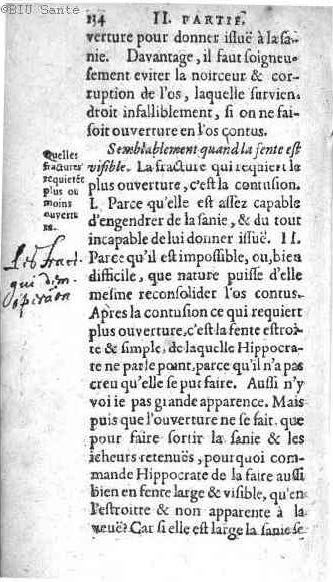 ©BIU Santé
134 II. PARTIE.
verture pour donner issuë à la sa-
nie. Davantage, il faut soigneu-
sement eviter la noirceur & cor-
ruption de l'os, laquelle survien-
droit infalliblement, si on ne fai-
soit ouverture en l'os contus.
Semblablement quand la fente est
visible. La fracture qui requiert le
plus ouverture, c'est la contusion.
I. Parce qu'elle est assez capable
d'engendrer de la sanie, & du tout
incapable de lui donner issuë. II.
Parce qu'il est impossible, ou, bien
difficile, que nature puisse d'elle
mesme reconsolider l'os contus.
Apres la contusion ce qui requiert
plus ouverture, c'est la fente estroi-
te & simple, de laquelle Hippocra-
te ne parle point, parce qu'il n'a pas
creu qu'elle se put faire. Aussi n'y
voi ie pas grande apparence. Mais
puis que l'ouverture ne se fait, que
pour faire sortir la sanie & les
icheurs retenuës, pourquoi com-
mande Hippocrate de la faire aussi
bien en fente large & visible, qu'en
l'estroitte & non apparente à la
veuë? Car si elle est large la sanie se
Quelles
fractures
requierēt
plus ou
moins
ouvertu
re.
Les fract.
qui